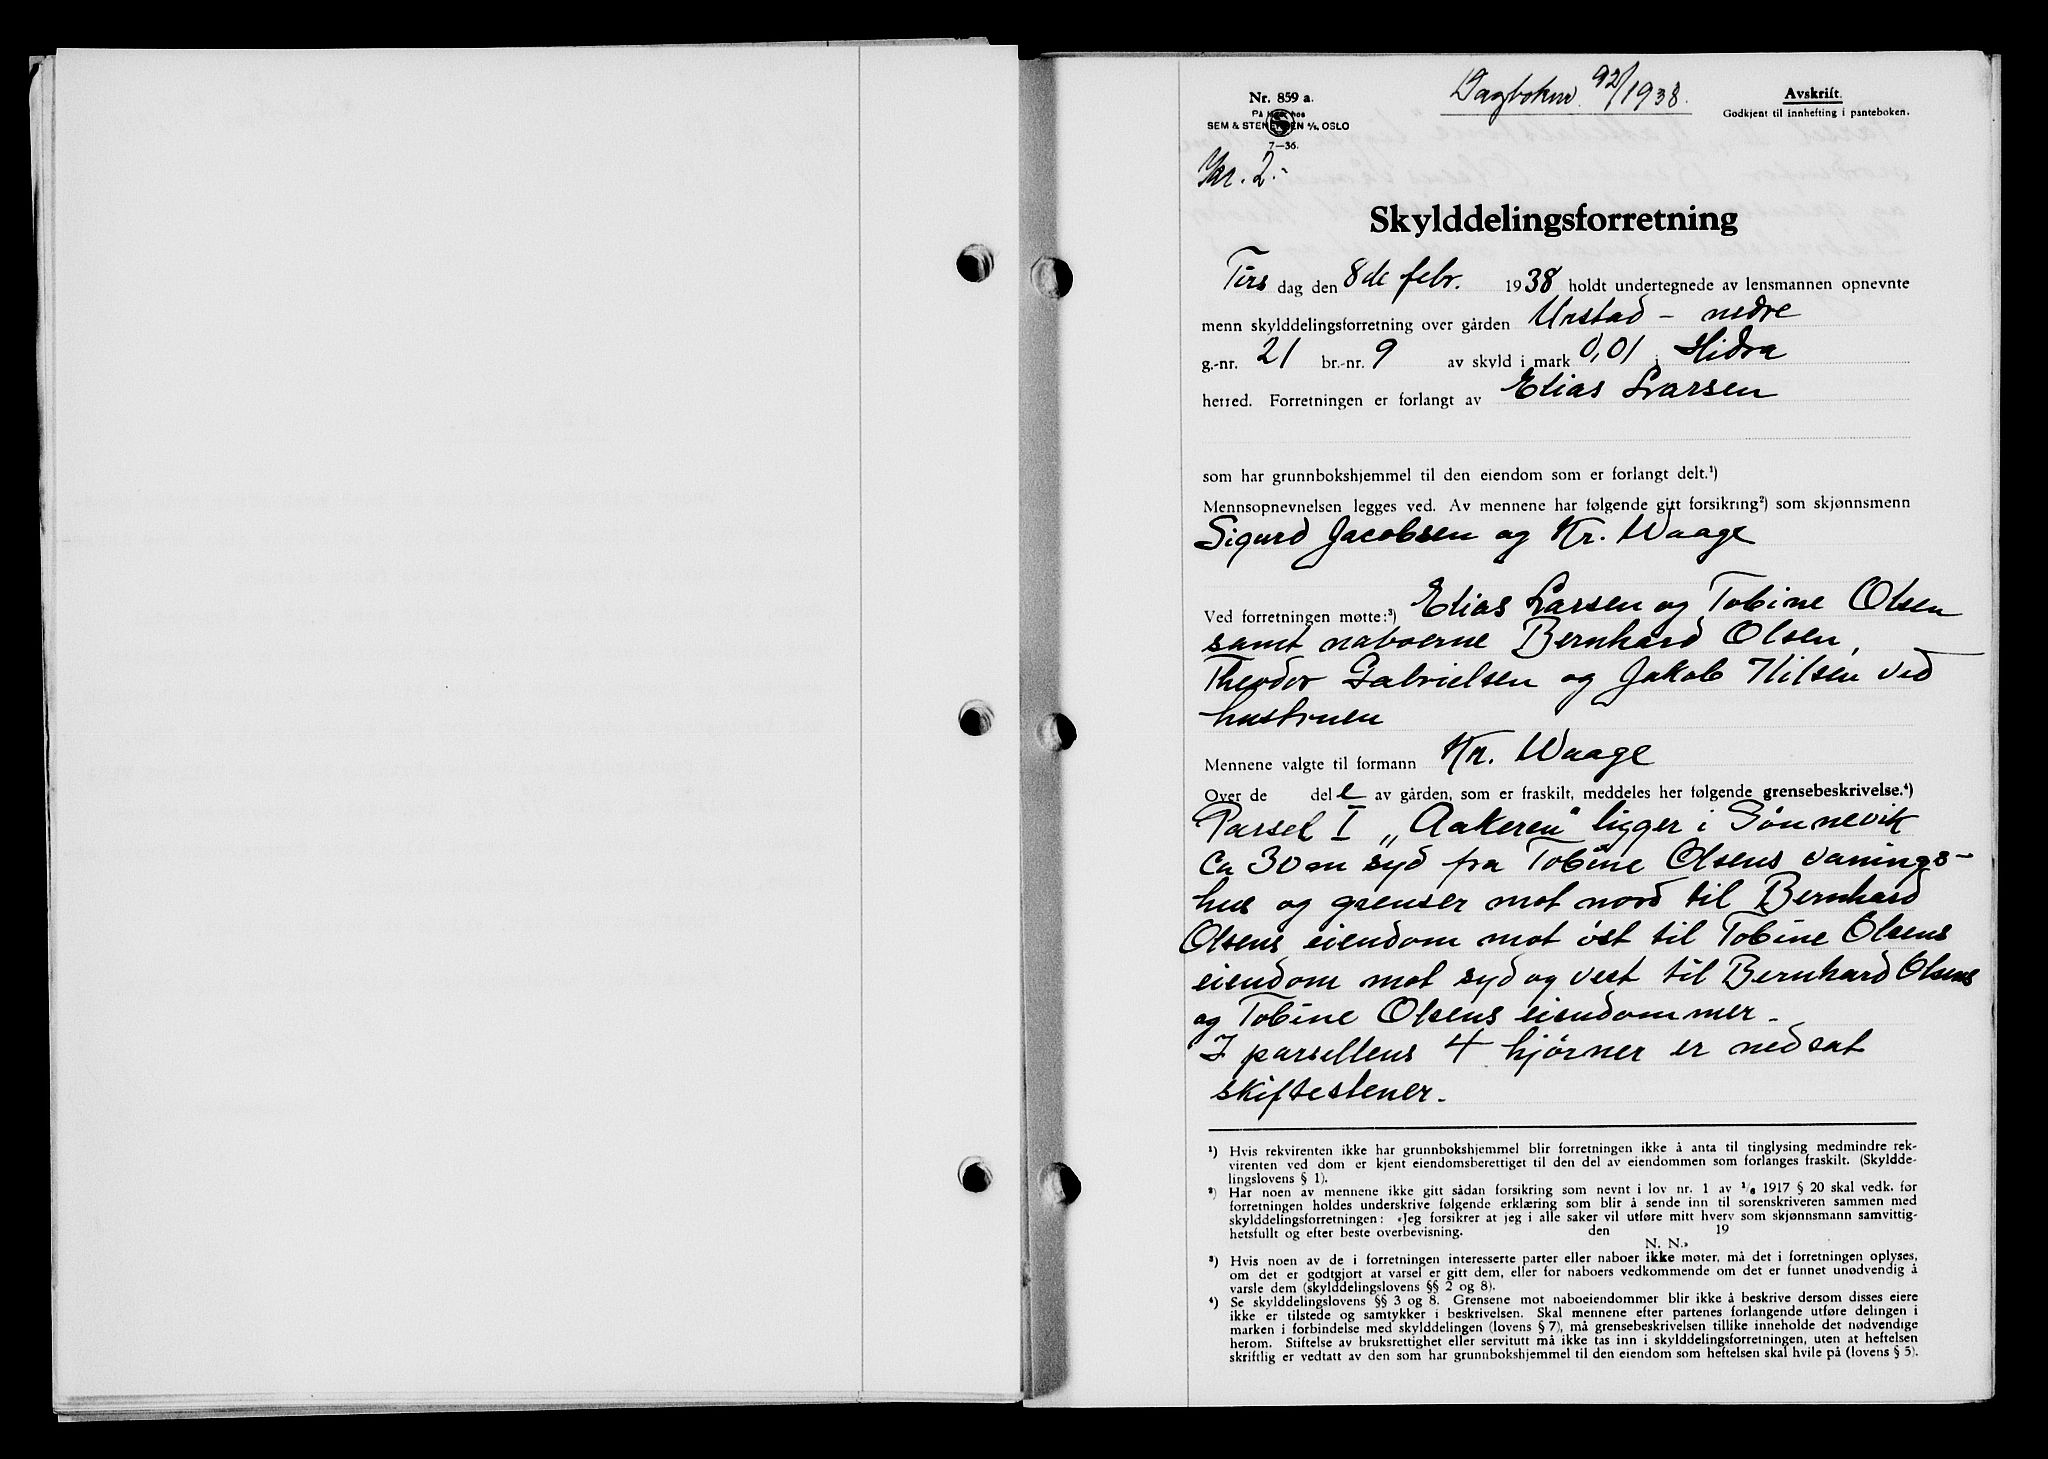 Nr. 859 a.
SEM & STENERSEN A/S, OSLO
7—36.
Dagboknr 92/1938.
Avskrift.
Godkjent til innhefting i panteboken.
Kr. 2.-
Skylddelingsforretning
Tirs dag den 8de febr. 1938 holdt undertegnede av lensmannen opnevnte
menn skylddelingsforretning over gården Urstad - nedre
g.-nr. 21 br.-nr. 9 av skyld i mark 0,01 i Hidra
herred. Forretningen er forlangt av Elias Larsen
som har grunnbokshjemmel til den eiendom som er forlangt delt.¹)
Mennsopnevnelsen legges ved. Av mennene har følgende gitt forsikring²) som skjønnsmenn
Sigurd Jacobsen og Kr. Waage
Ved forretningen møtte:³) Elias Larsen og Tobine Olsen
samt naboerne Bernhard Olsen,
Theodor Gabrielsen og Jakob Nilsen ved
hustruen
Mennene valgte til formann Kr. Waage
Over de del e av gården, som er fraskilt, meddeles her følgende grensebeskrivelse.⁴)
Parsel I „Aakeren" ligger i Sønnevik
ca 30 m syd fra Tobine Olsens vanings-
hus og grenser mot nord til Bernhard
Olsens eiendom mot øst til Tobine Olsens
eiendom mot syd og vest til Bernhard Olsens
og Tobine Olsens eiendommer.
I parsellens 4 hjørner er nedsat
skiftestener.
¹) Hvis rekvirenten ikke har grunnbokshjemmel blir forretningen ikke å anta til tinglysing medmindre rek-
virenten ved dom er kjent eiendomsberettiget til den del av eiendommen som forlanges fraskilt. (Skyldde-
lingslovens § 1).
²) Har noen av mennene ikke gitt sådan forsikring som nevnt i lov nr. 1 av ¹/₆ 1917 § 20 skal vedk. før
forretningen holdes underskrive følgende erklæring som blir å sende inn til sorenskriveren sammen med
skylddelingsforretningen: «Jeg forsikrer at jeg i alle saker vil utføre mitt hverv som skjønnsmann samvittig-
hetsfullt og efter beste overbevisning. den 19
N. N.»
³) Hvis noen av de i forretningen interesserte parter eller naboer ikke møter, må det i forretningen oplyses,
om det er godtgjort at varsel er gitt dem, eller for naboers vedkommende om det er funnet unødvendig å
varsle dem (skylddelingslovens §§ 2 og 8).
⁴) Se skylddelingslovens §§ 3 og 8. Grensene mot naboeiendommer blir ikke å beskrive dersom disses eiere
ikke er tilstede og samtykker i beskrivelsen. Skal mennene efter partenes forlangende utføre delingen i
marken i forbindelse med skylddelingen (lovens § 7), må grensebeskrivelsen tillike inneholde det nødvendige
herom. Stiftelse av bruksrettighet eller servitutt må ikke tas inn i skylddelingsforretningen, uten at heftelsen
skriftlig er vedtatt av den som har grunnbokshjemmel til den eiendom som heftelsen skal hvile på (lovens § 5).